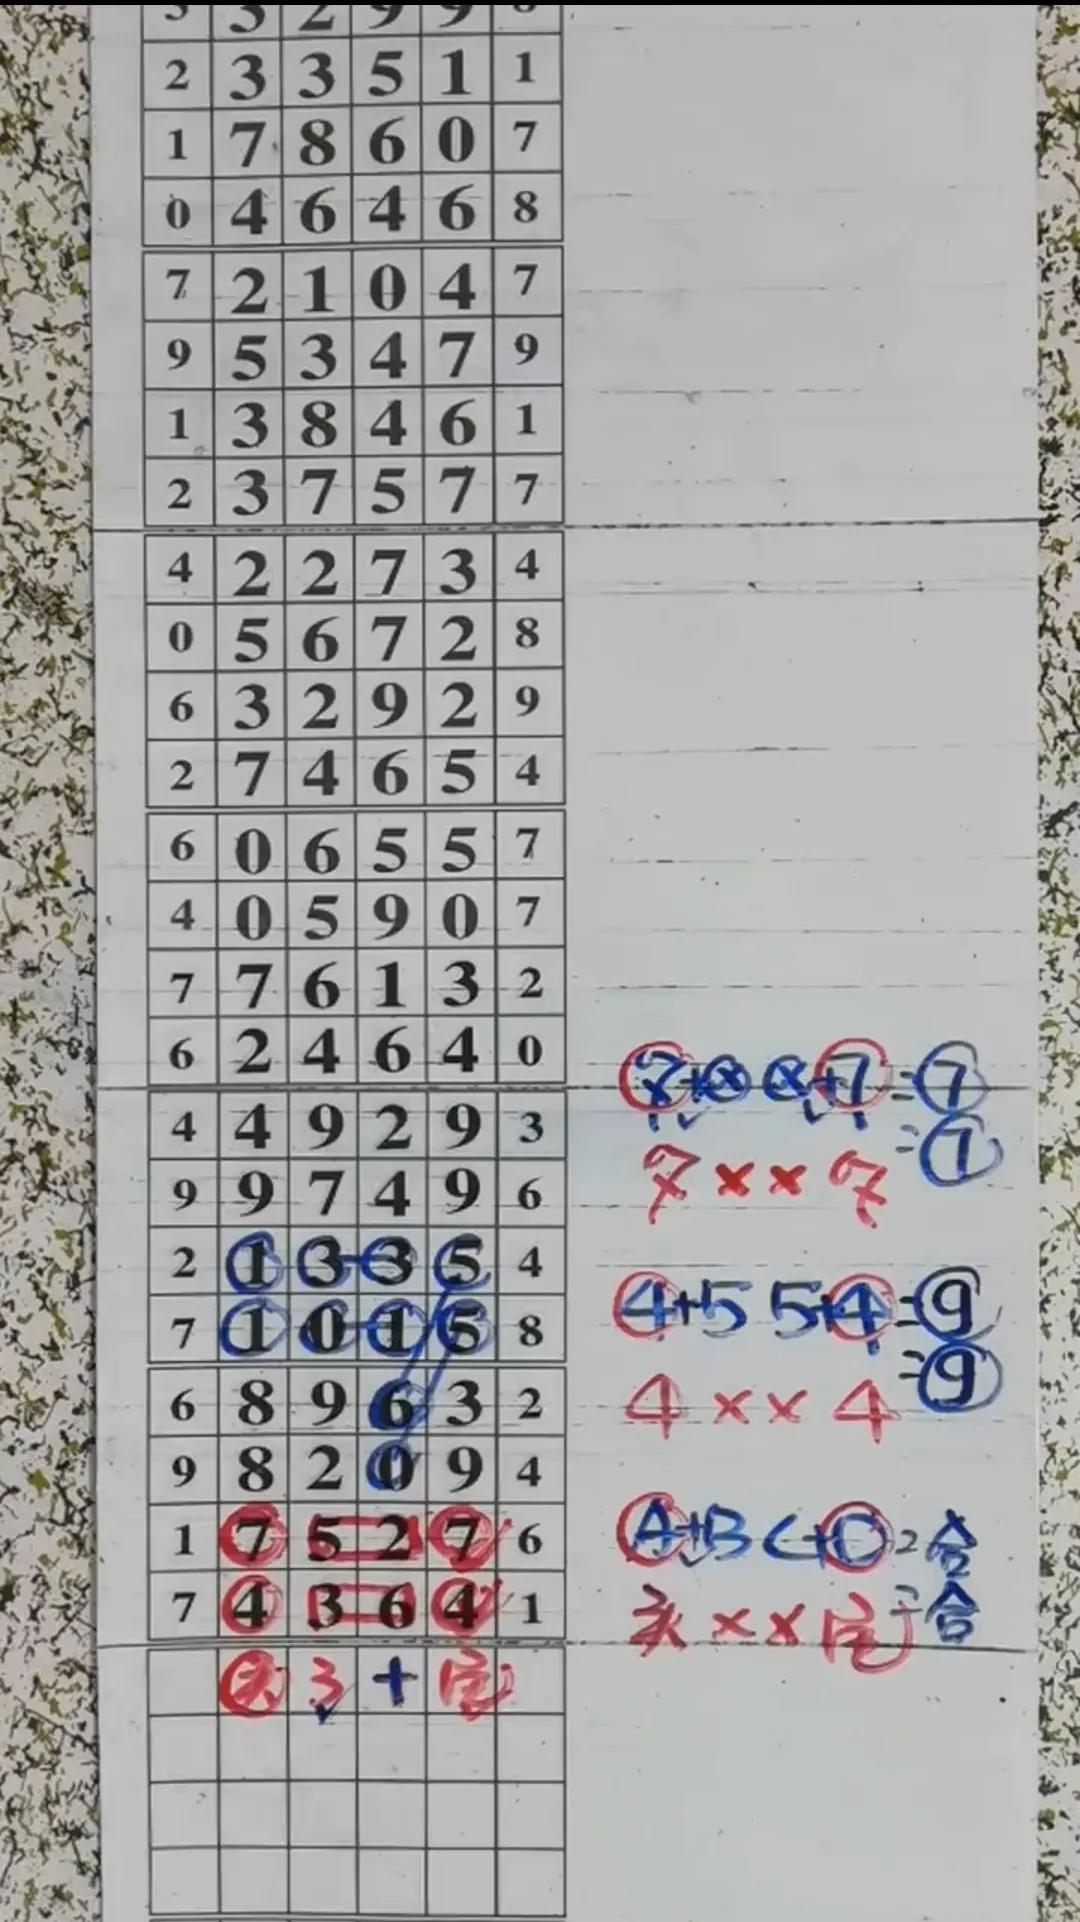 2 3 3 5 1 1
1 7 8 6 0 7
0 4 6 4 6 8
7 2 1 0 4 7
9 5 3 4 7 9
1 3 8 4 6 1
2 3 7 5 7 7
4 2 2 7 3 4
0 5 6 7 2 8
6 3 2 9 2 9
2 7 4 6 5 4
6 0 6 5 5 7
4 0 5 9 0 7
7 7 6 1 3 2
6 2 4 6 4 0
4 4 9 2 9 3
9 9 7 4 9 6
2 1 3 3 5 4
7 1 0 1 5 8
6 8 9 6 3 2
9 8 2 0 9 4
1 7 5 2 7 6
7 4 3 6 4 1
3 +
=7
=7
7 x x 7
4+5 5+4=9
=9
4 x x 4
A+B C+D=合
=合
头 x x